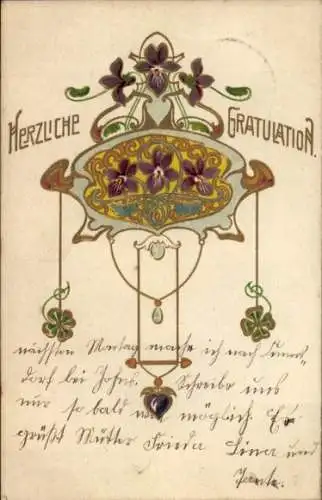 HERZLICHE GRATULATION.
nächsten Montag mache ich nach
dorf bei Johns. Schreibe uns
nur so bald wie möglich. Es
grüßt Mutter Frieda Lina und
Tante.